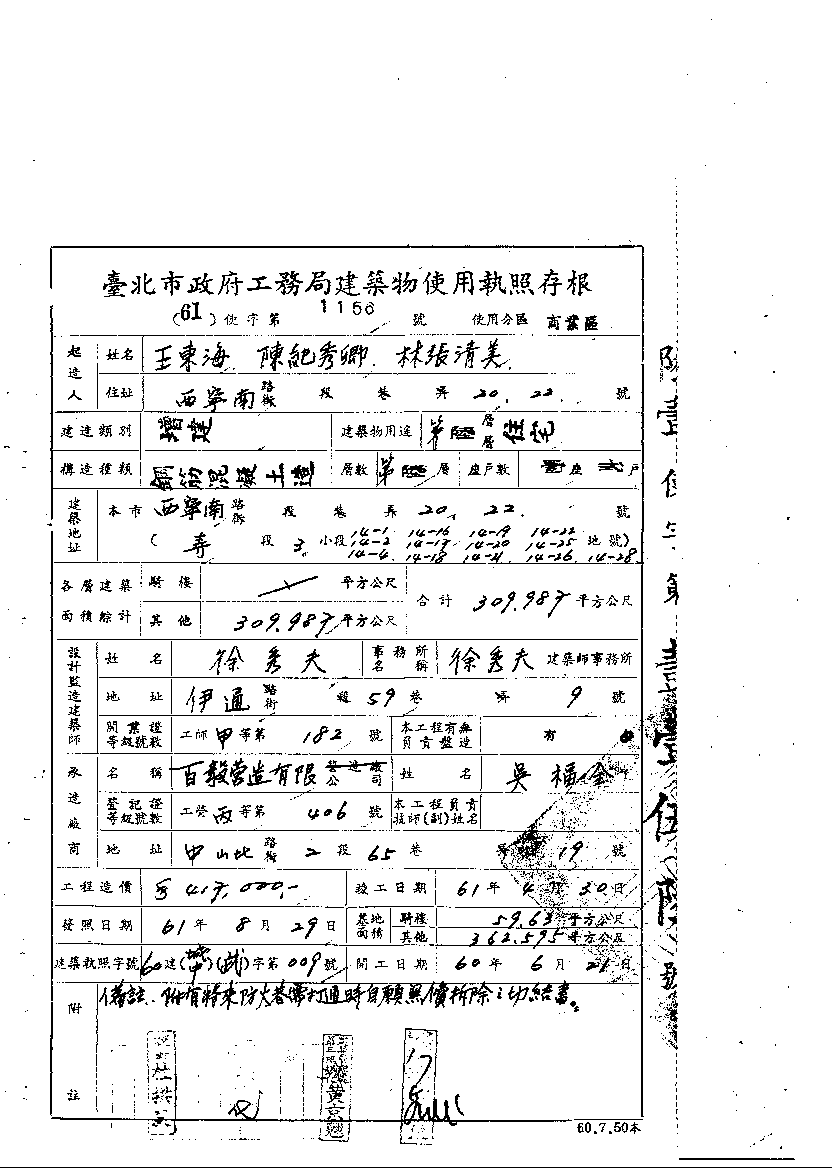 臺北市政府工務局建築物使用執照存根
(61)使字第 1156 號 使用分區 商業區
起造人 姓名 王東海 陳紀秀卿 林張清美
住址 西寧南 路街 段 巷 弄 20. 22. 號
建造類別 增建 建築物用途 第 層 層 住宅
構造種類 鋼筋混凝土造 層數 第 層 座戶數 座 戶
建築地址 本市 西寧南 路街 段 巷 弄 20. 22. 號
( 段 3 小段 14-1 14-16 14-19 14-22 地號)
14-2 14-17 14-20 14-25
14-4 14-18 14-21 14-26 14-28
各層建築面積綜計 騎樓 平方公尺 合計 309.987 平方公尺
其他 309.987 平方公尺
設計監造建築師 姓名 徐秀夫 事務所名稱 徐秀夫 建築師事務所
地址 伊通 路街 段 59 巷 弄 9 號
開業證等級號數 工師 甲 等第 182 號 本工程有無負責監造 有
承造廠商 名稱 百穀營造有限 公司 姓名 吳福金
登記證等級號數 工營 丙 等第 406 號 本工程負責技師(副)姓名
地址 中山北 路街 2 段 65 巷 弄 19 號
工程造價 417,000.- 竣工日期 61 年 4 月 30 日
發照日期 61 年 8 月 29 日 基地面積 騎樓 59.63 平方公尺
其他 362.595 平方公尺
建築執照字號 60 建( )( )字第 009 號 開工日期 60 年 6 月 21 日
附註 備註、附有將來防火巷需打通時自願無價拆除之切結書。
黃京
17
60.7.50本